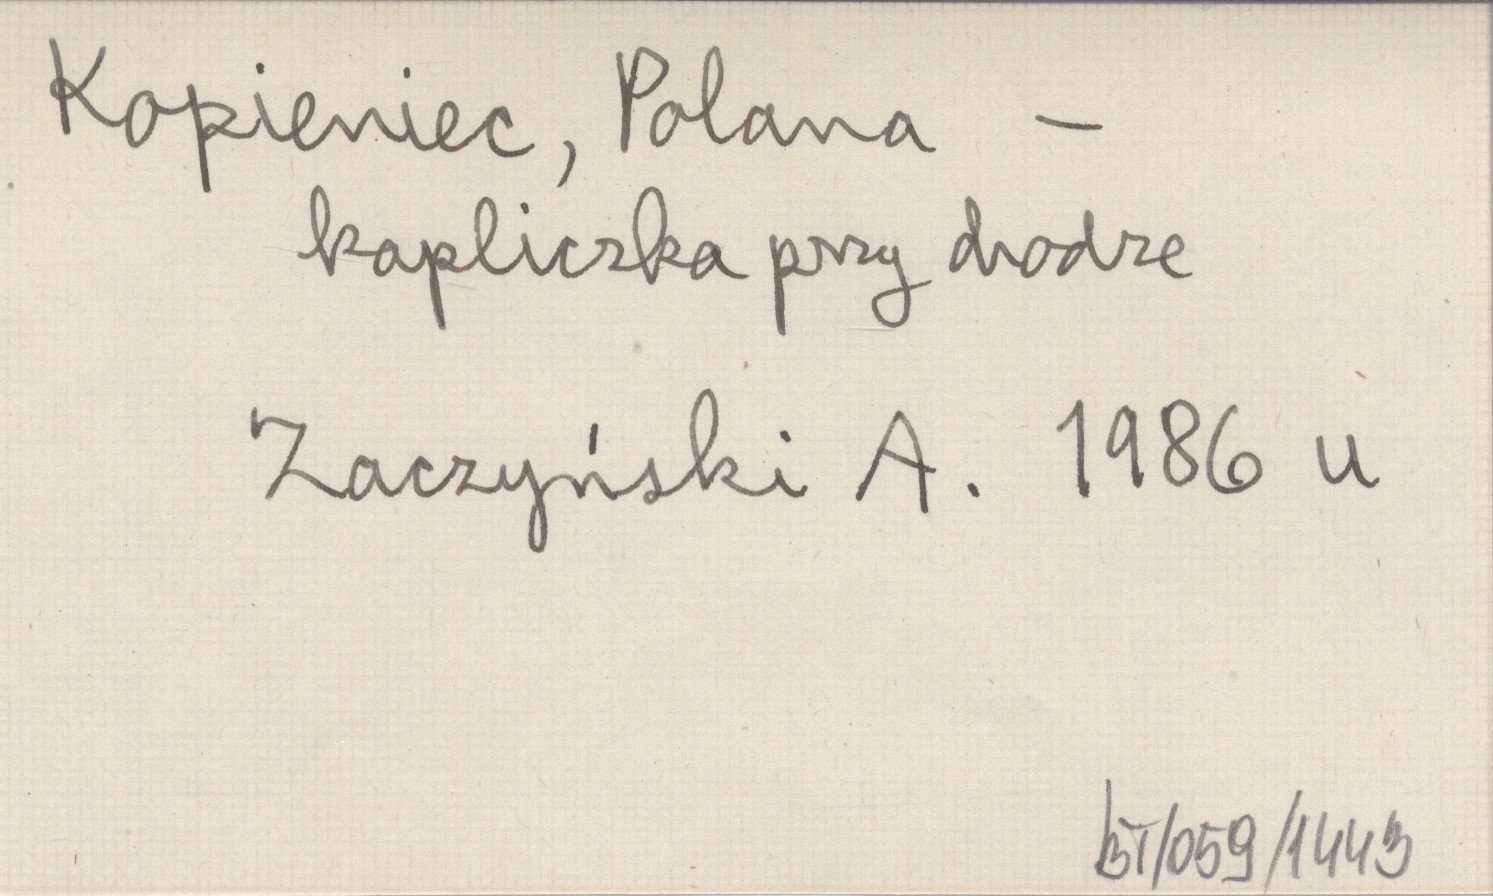 Kopieniec, Polana –
kapliczka przy drodze
Zaczyński A. 1986 u
BT/059/1443